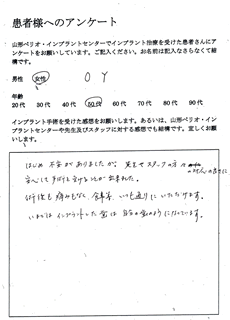 患者様へのアンケート
山形ペリオ・インプラントセンターでインプラント治療を受けた患者さんに
アンケートをお願いしています。ご記入ください。お名前は記入なさらなくて結
構です。
男性 女性 O Y
年齢
20代 30代 40代 50代 60代 70代 80代 90代
インプラント手術を受けた感想をお願いします。あるいは、山形ペリオ・イン
プラントセンターや先生及びスタッフに対する感想でも結構です。宜しくお願
いします。
はじめ 不安がありましたが、先生やスタッフの方々
安心して手術を受ける事が出来ました。
術後も痛みもなく、食事は、いつも通りにいただけます。
いまではインプラントした歯は自分の歯のようになっています。